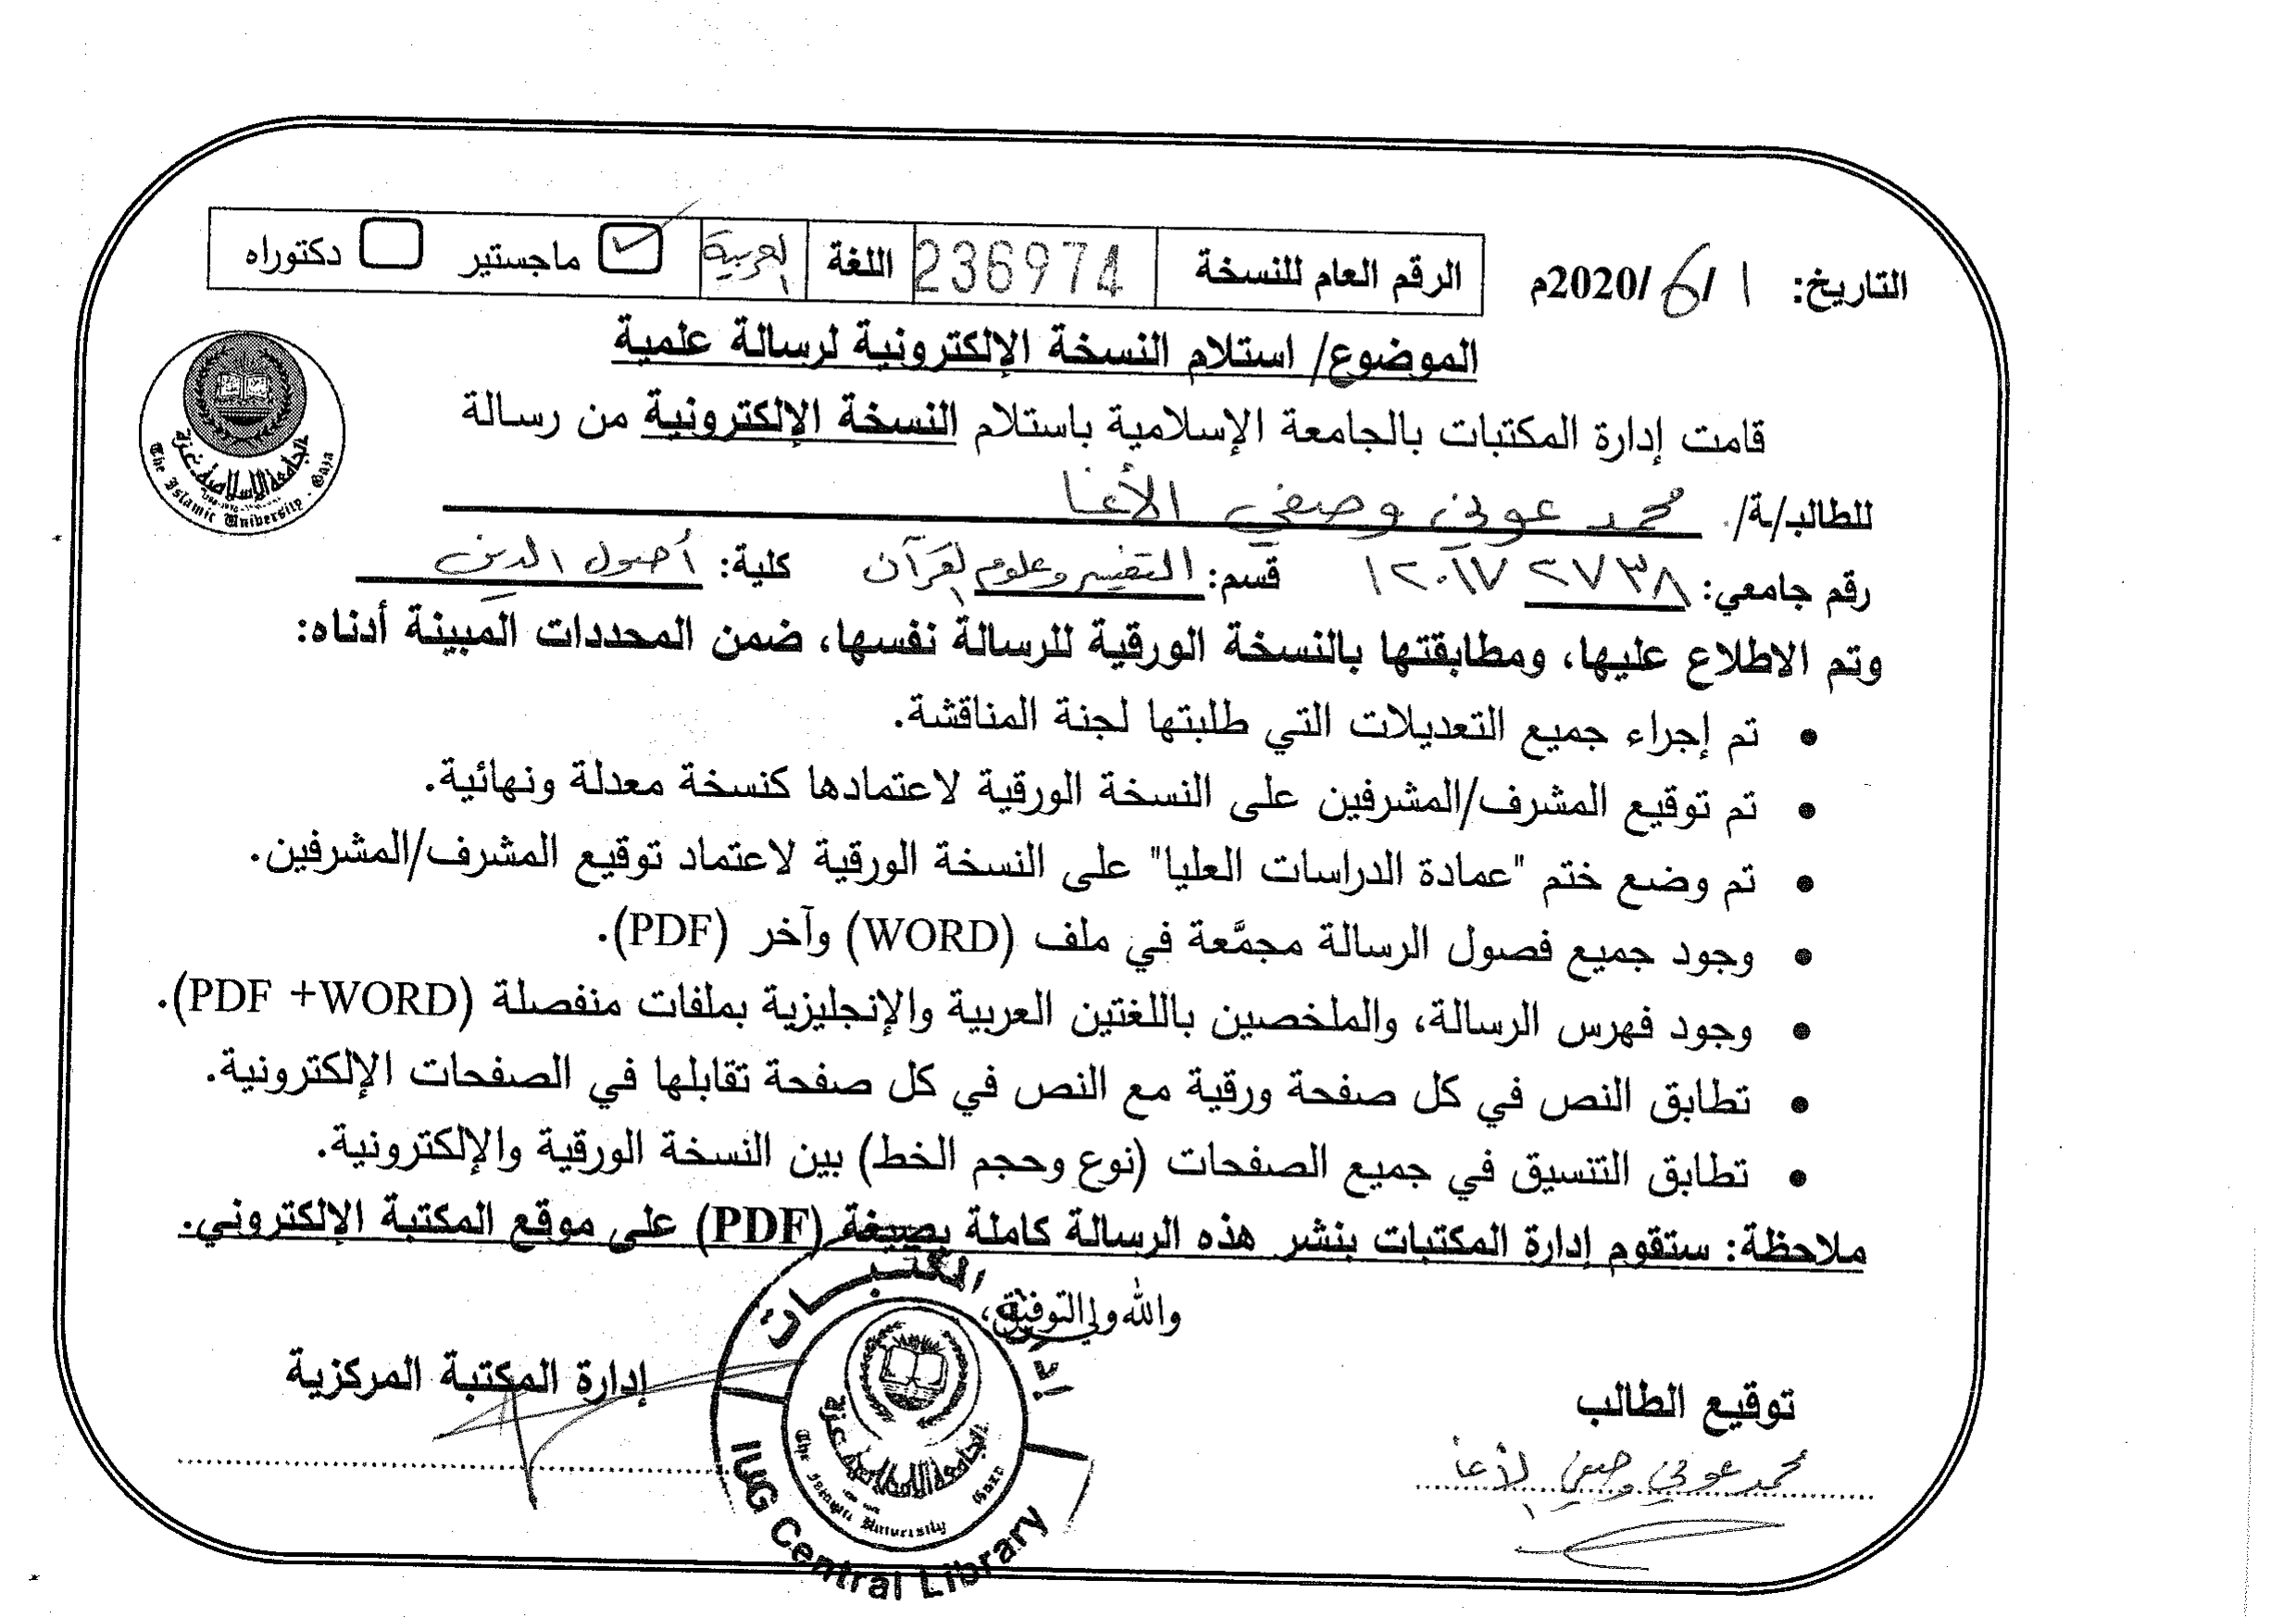 التاريخ: ١ /6 /2020م الرقم العام للنسخة 236974 اللغة العربية ماجستير دكتوراه
الموضوع/ استلام النسخة الإلكترونية لرسالة علمية
قامت إدارة المكتبات بالجامعة الإسلامية باستلام النسخة الإلكترونية من رسالة
للطالب/ـة/ محمد عوني وصفي الأغا
رقم جامعي: ١٢٠١٧٢٧٣٨ قسم: التفسير وعلوم القرآن كلية: أصول الدين
وتم الاطلاع عليها، ومطابقتها بالنسخة الورقية للرسالة نفسها، ضمن المحددات المبينة أدناه:
• تم إجراء جميع التعديلات التي طلبتها لجنة المناقشة.
• تم توقيع المشرف/المشرفين على النسخة الورقية لاعتمادها كنسخة معدلة ونهائية.
• تم وضع ختم "عمادة الدراسات العليا" على النسخة الورقية لاعتماد توقيع المشرف/المشرفين.
• وجود جميع فصول الرسالة مجمَّعة في ملف (WORD) وآخر (PDF).
• وجود فهرس الرسالة، والملخصين باللغتين العربية والإنجليزية بملفات منفصلة (PDF +WORD).
• تطابق النص في كل صفحة ورقية مع النص في كل صفحة تقابلها في الصفحات الإلكترونية.
• تطابق التنسيق في جميع الصفحات (نوع وحجم الخط) بين النسخة الورقية والإلكترونية.
ملاحظة: ستقوم إدارة المكتبات بنشر هذه الرسالة كاملة بصيغة (PDF) على موقع المكتبة الإلكتروني.
والله ولي التوفيق،
توقيع الطالب إدارة المكتبة المركزية
محمد عوني وصفي الأغا
الجامعة الإسلامية غزة
The Islamic University - Gaza
المكتبات
الجامعة الإسلامية غزة
The Islamic University Gaza
IUG Central Library